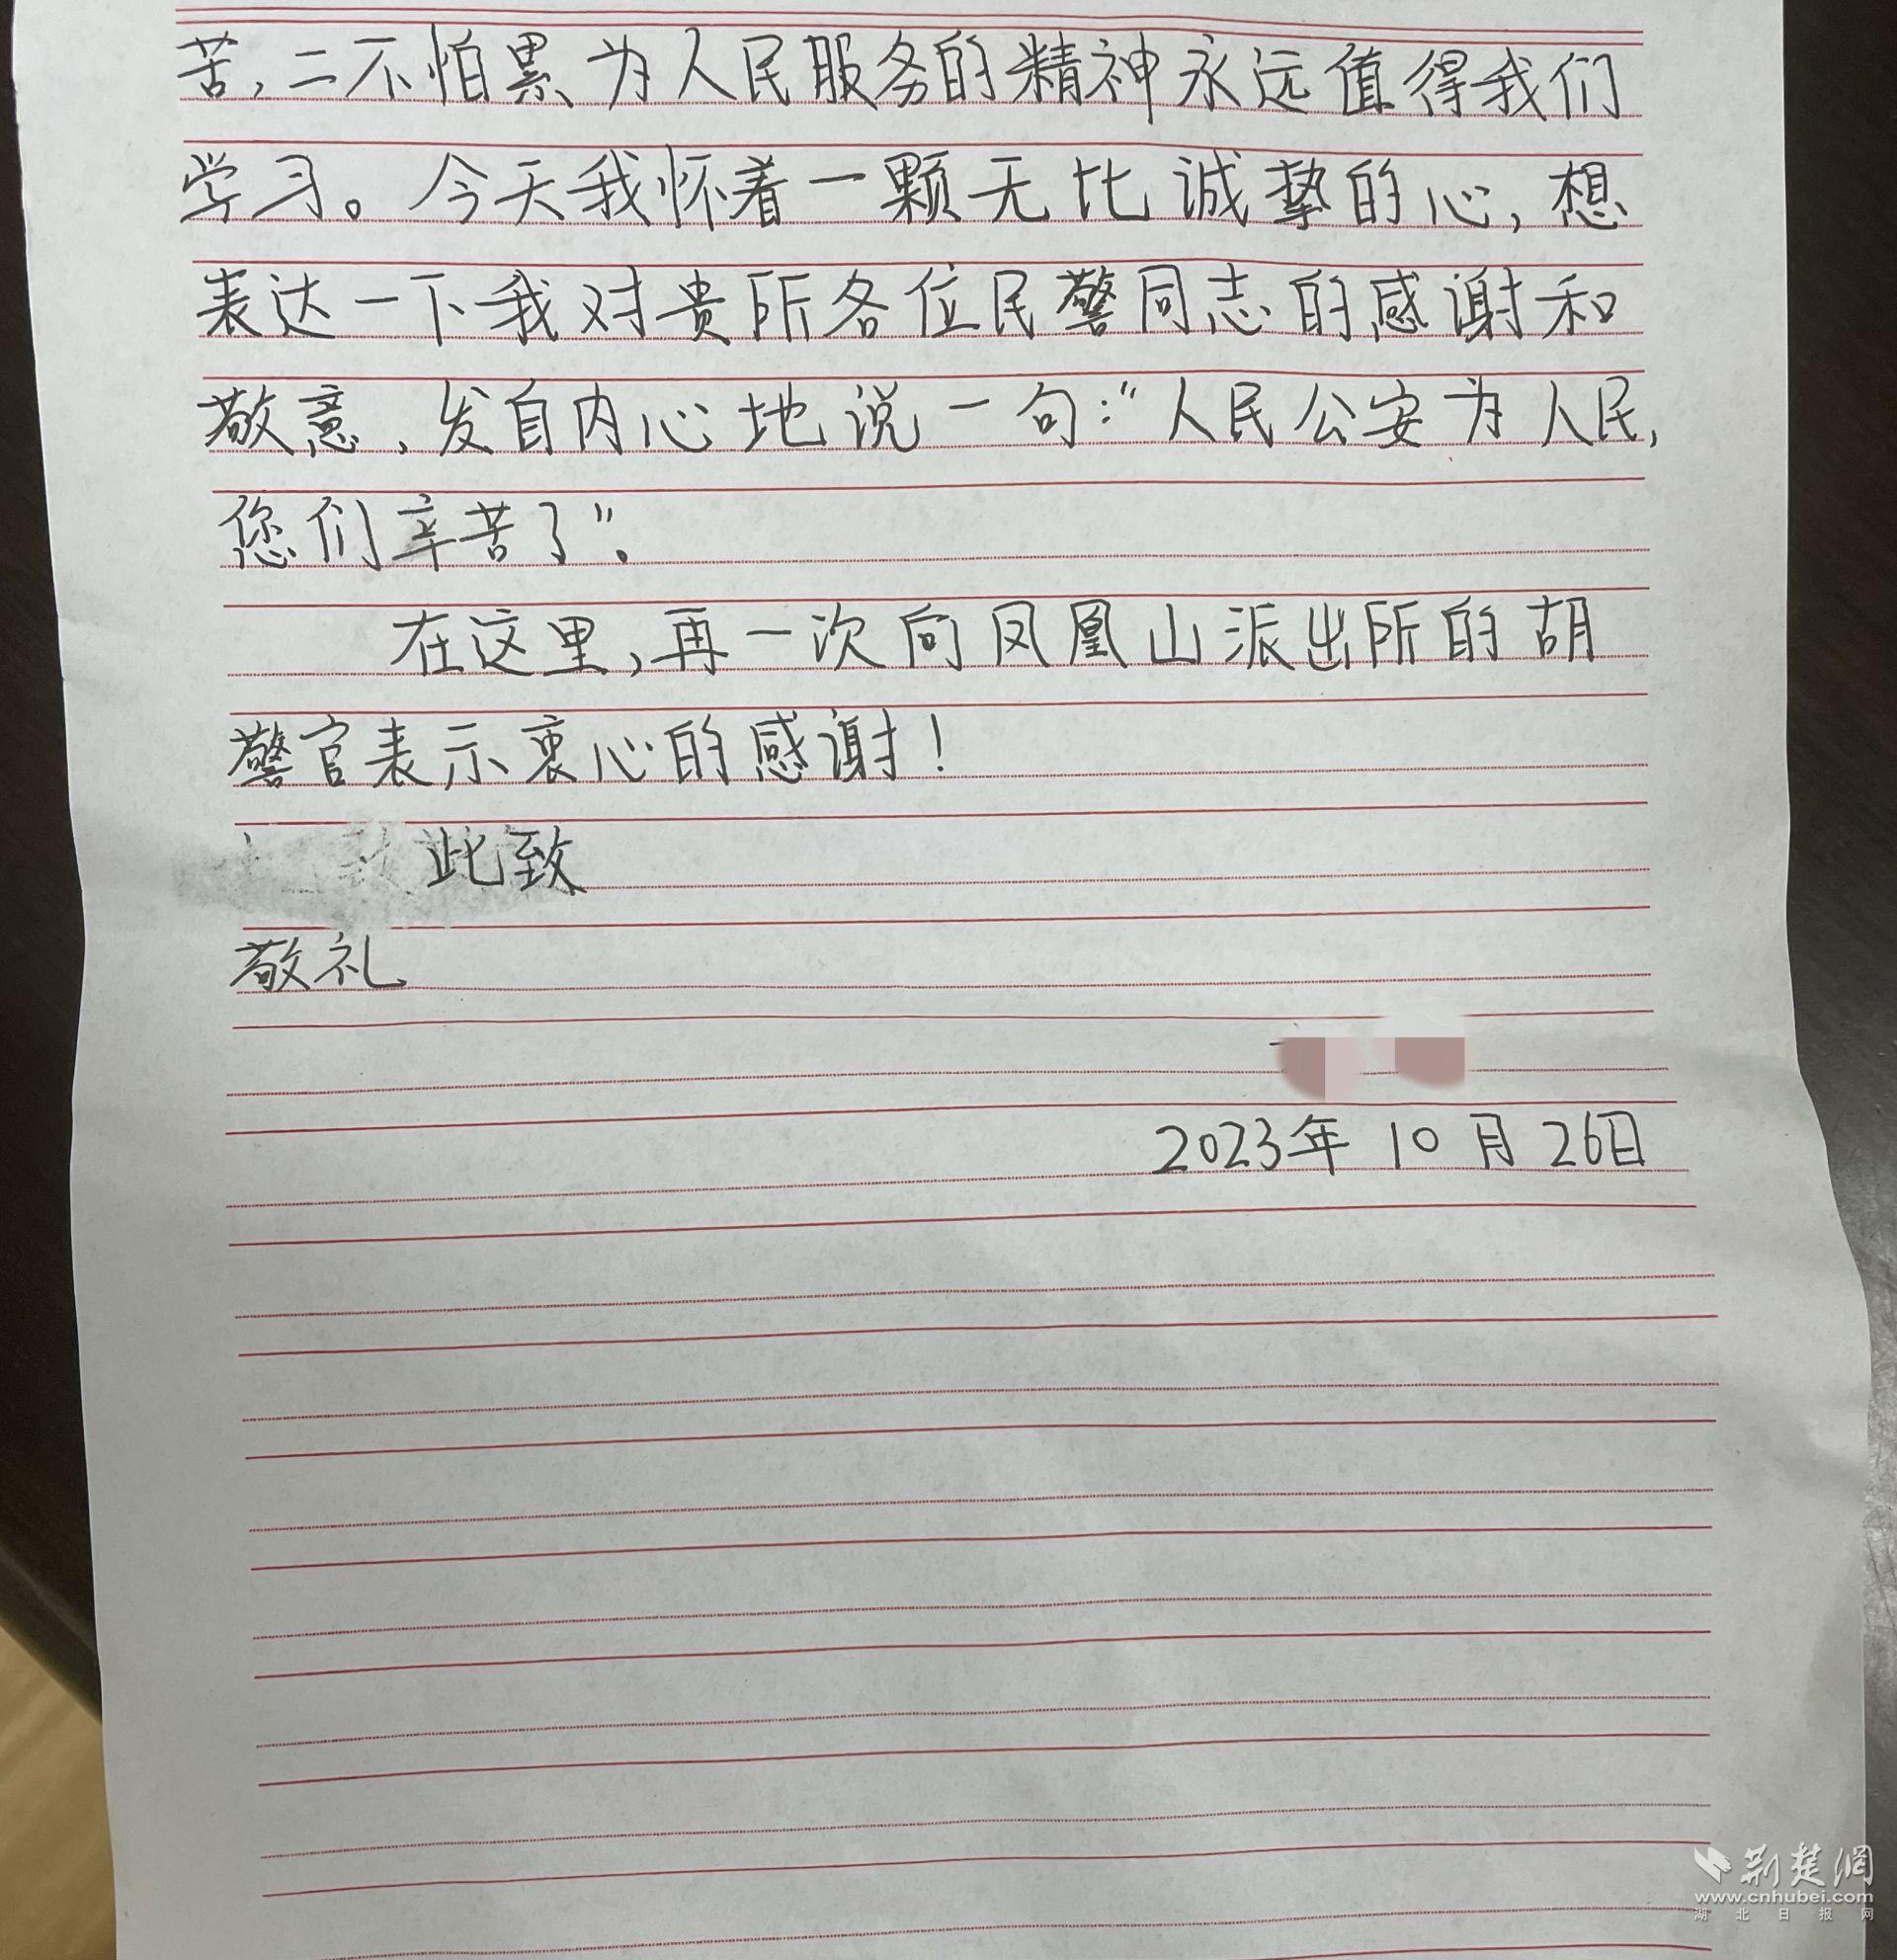 苦,二不怕累为人民服务的精神永远值得我们
学习。今天我怀着一颗无比诚挚的心,想
表达一下我对贵所各位民警同志的感谢和
敬意,发自内心地说一句:“人民公安为人民,
您们辛苦了”。
在这里,再一次向凤凰山派出所的胡
警官表示衷心的感谢!
此致
敬礼
2023年10月26日
荆楚网
www.cnhubei.com
湖北日报网